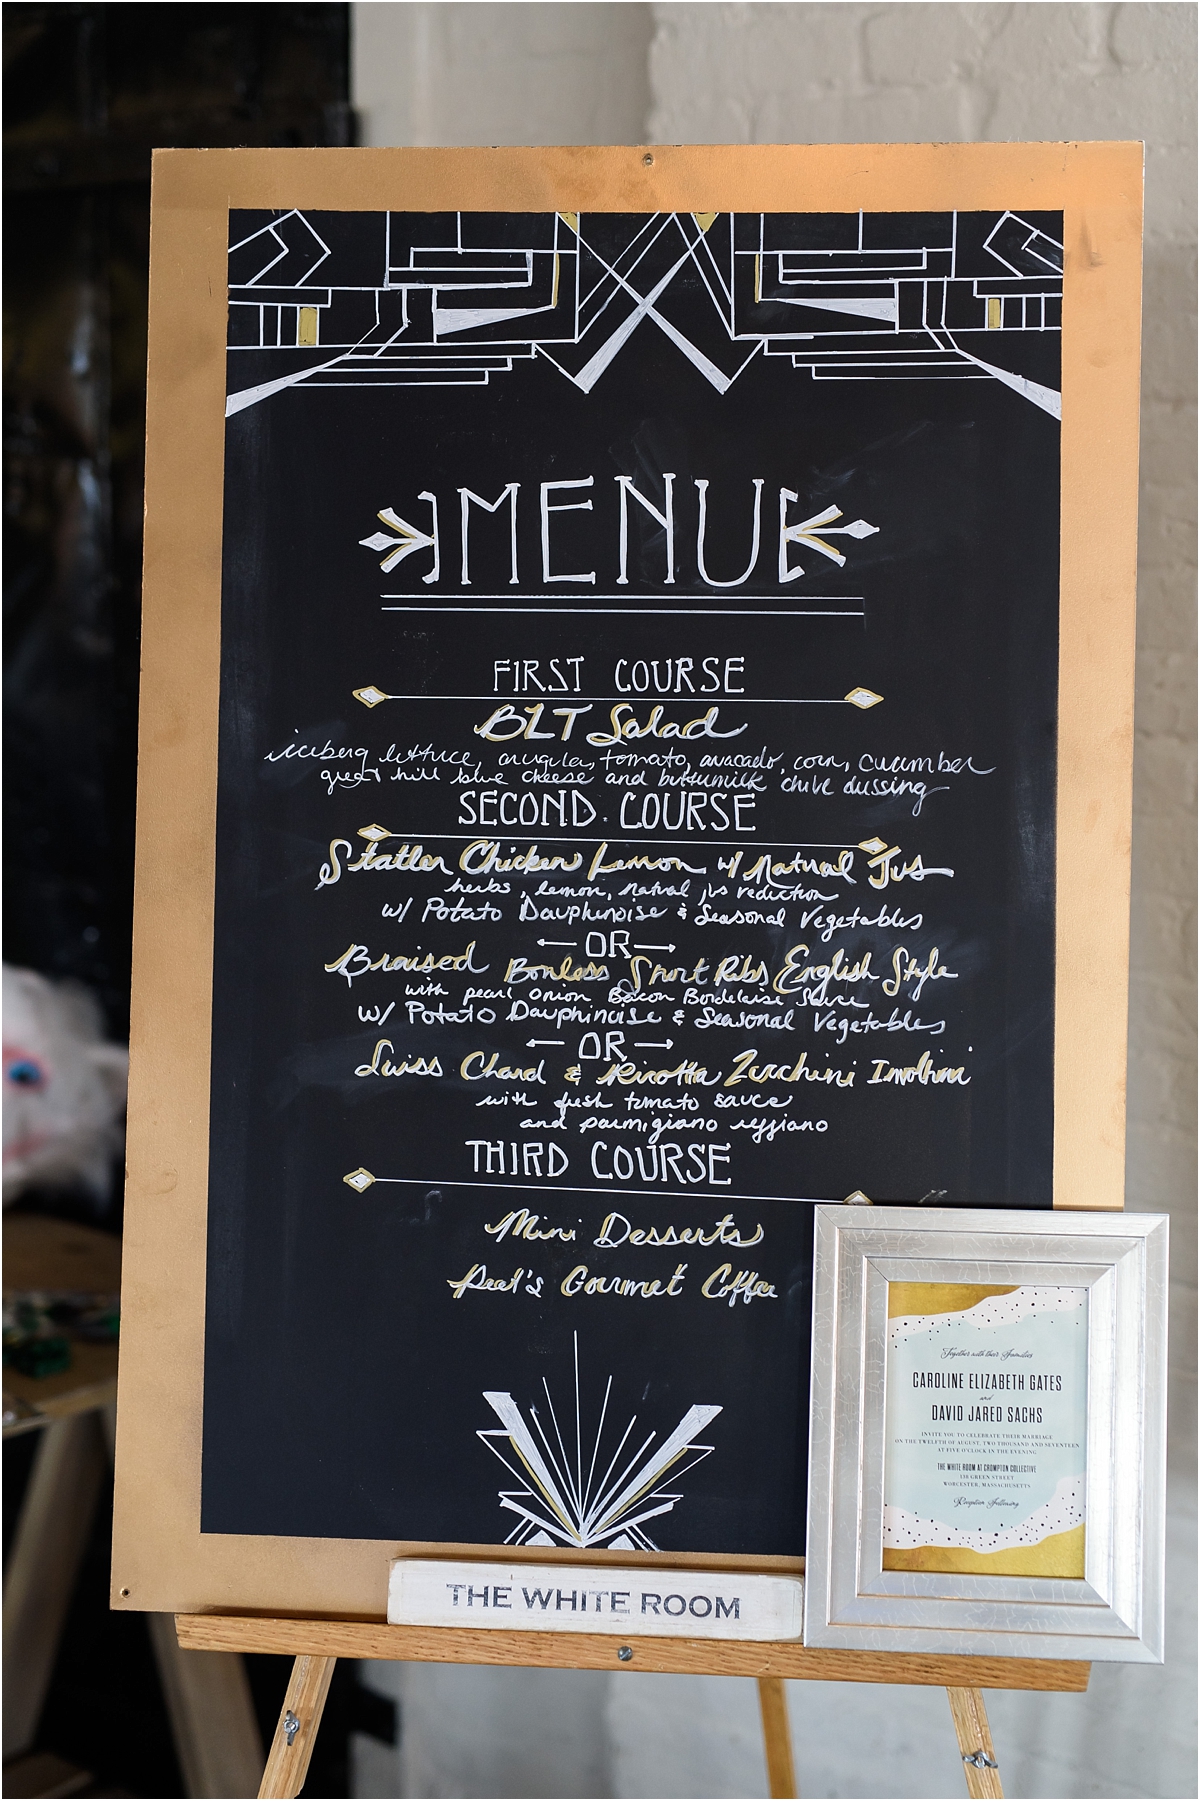 MENU
FIRST COURSE
BLT Salad
iceberg lettuce, arugula, tomato, avocado, corn, cucumber
great hill blue cheese and buttermilk chive dressing
SECOND COURSE
Statler Chicken Lemon w/ Natural Jus
herbs, lemon, natural jus reduction
w/ Potato Dauphinoise & Seasonal Vegetables
OR
Braised Bonless Short Ribs English Style
with pearl onion Bacon Bordelaise Sauce
w/ Potato Dauphinoise & Seasonal Vegetables
OR
Swiss Chard & Zucchini
with fresh tomato sauce
and parmigiano reggiano
THIRD COURSE
Mini Desserts
Peet's Gourmet Coffee
THE WHITE ROOM
Together with their Families
CAROLINE ELIZABETH GATES
and
DAVID JARED SACHS
INVITE YOU TO CELEBRATE THEIR MARRIAGE
ON THE TWELFTH OF AUGUST, TWO THOUSAND AND SEVENTEEN
AT FIVE O'CLOCK IN THE EVENING
THE WHITE ROOM AT CROMPTON COLLECTIVE
138 GREEN STREET
WORCESTER, MASSACHUSETTS
Reception Following